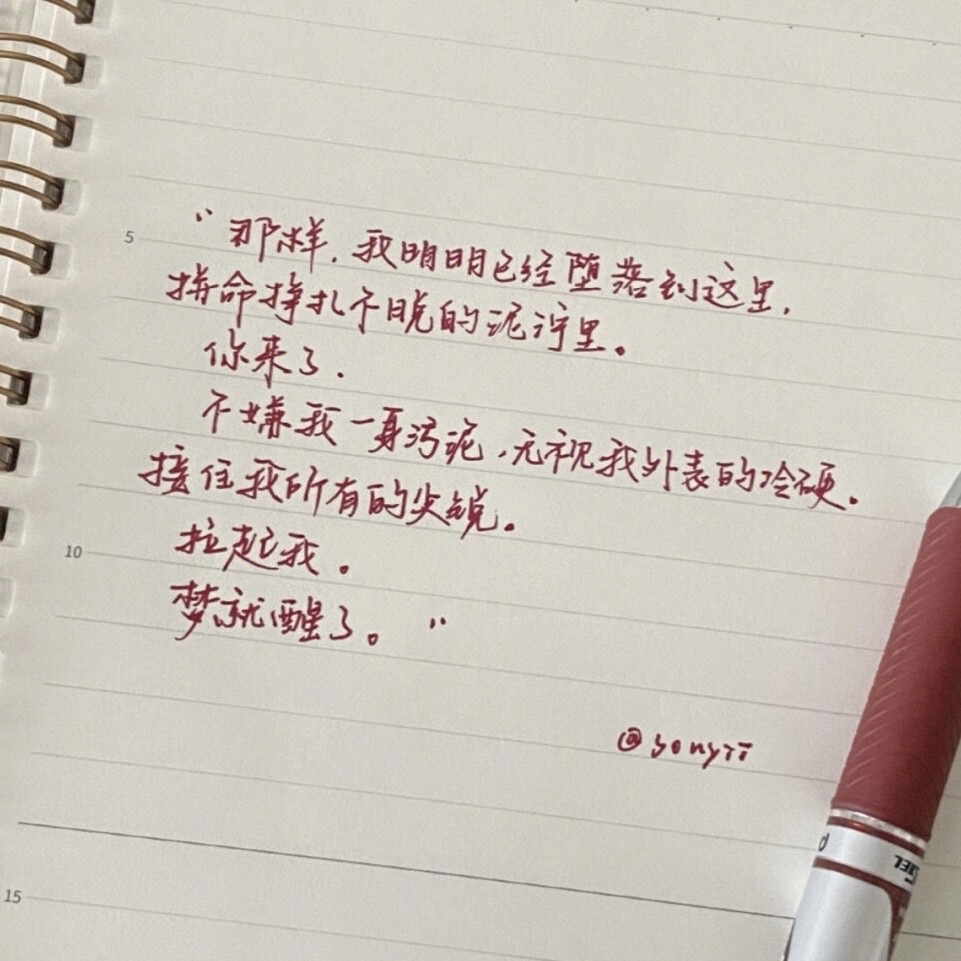 “那样，我明明已经堕落到这里，
拼命挣扎不脱的泥泞里。
你来了，
不嫌我一身污泥，无视我外表的冷硬。
接住我所有的尖锐。
拉起我。
梦就醒了。”
@sonyii
5
10
15
GEL